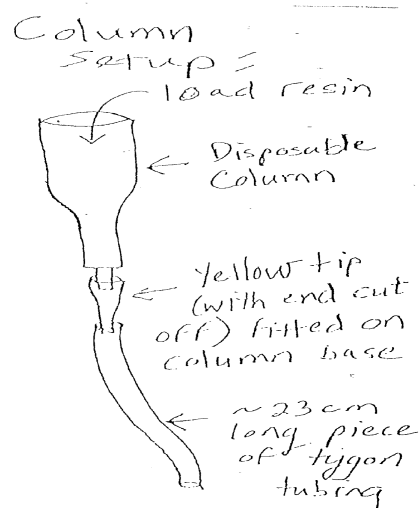 Column
Setup =
load resin
Disposable
Column
Yellow tip
(with end cut
off) fitted on
column base
~23cm
long piece
of tygon
tubing